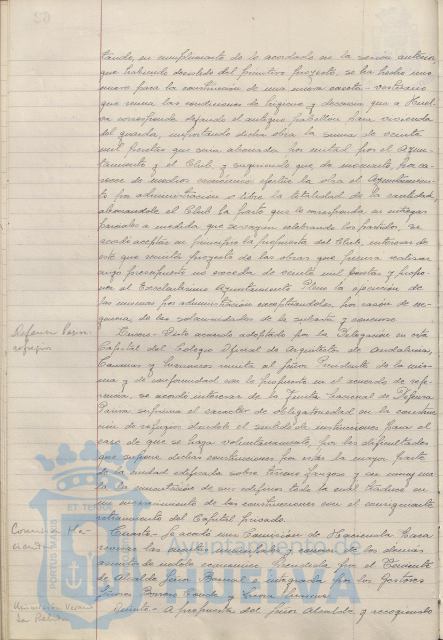 tando, en cumplimiento de lo acordado en la sesión anterior,
que habiendo desistido del primitivo proyecto, se ha hecho uno
nuevo para la construcción de una nueva caseta-vestuario
que reuna las condiciones de higiene y decencia que a Huel-
va corresponde dejando el antiguo pabellón para vivienda
del guarda, importando dicha obra la suma de veinte
mil pesetas que sería abonada por mitad por el Ayun-
tamiento y el Club y sugiriendo que, de momento, por ca-
recer de medios económicos efectúe la obra el Ayuntamien-
to por administración o libre la totalidad de la cantidad,
abonandole el Club la parte que le corresponda en entregas
parciales a medida que se vayan celebrando los partidos, se
acordó aceptar en principio la propuesta del Club, interesar de
este que remita proyecto de las obras que piensa realizar
cuyo presupuesto no exceda de veinte mil pesetas y propo-
ner al Excelentísimo Ayuntamiento Pleno la ejecución de
las mismas por administración exceptuandolas por razón de
de las solemnidades de la subasta y concurso
Defensa Pasiva
refugios
Tercero.- Visto acuerdo adoptado por la Delegación en esta
Capital del Colegio Oficial de Arquitectos de Andalucía,
Canarias y Marruecos remite al Señor Presidente de la mis-
ma y de conformidad con la propuesta en el acuerdo de refe-
rencia, se acordó interesar de la Junta Nacional de Defensa
Pasiva suprima el caracter de obligatoriedad en la construc-
ción de refugios dandole el sentido de instrucciones para el
caso de que se haga voluntariamente, por las dificultades
que supone dichas construcciones por estar la mayor parte
de la ciudad edificada sobre terreno fangoso y ser
de la cimentación de sus edificios todo lo cual traduce en
un encarecimiento de las construcciones con el consiguiente
retraimiento del Capital privado.
Comisión Ha-
cienda
Cuarto.- Se acordó una Comisión de Hacienda para
revisar las
asuntos de indole economica Presidida por el Teniente
de Alcalde Señor e integrada por los Gestores
Señores
Quinto.- A propuesta del Señor Alcalde y recogiendo
Ayuntamiento de
HUELVA
PORTUS MARIS ET TERRAE